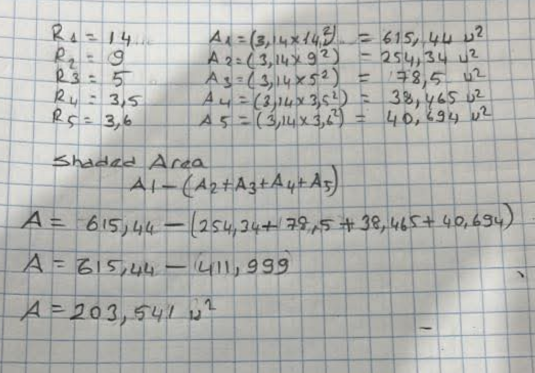 R1 = 14 A1 = (3,14 x 14²) = 615,44 u²
R2 = 9 A2 = (3,14 x 9²) = 254,34 u²
R3 = 5 A3 = (3,14 x 5²) = 78,5 u²
R4 = 3,5 A4 = (3,14 x 3,5²) = 38,465 u²
R5 = 3,6 A5 = (3,14 x 3,6²) = 40,694 u²
Shaded Area
A1 - (A2+A3+A4+A5)
A = 615,44 - (254,34+78,5+38,465+40,694)
A = 615,44 - (411,999)
A = 203,541 u²